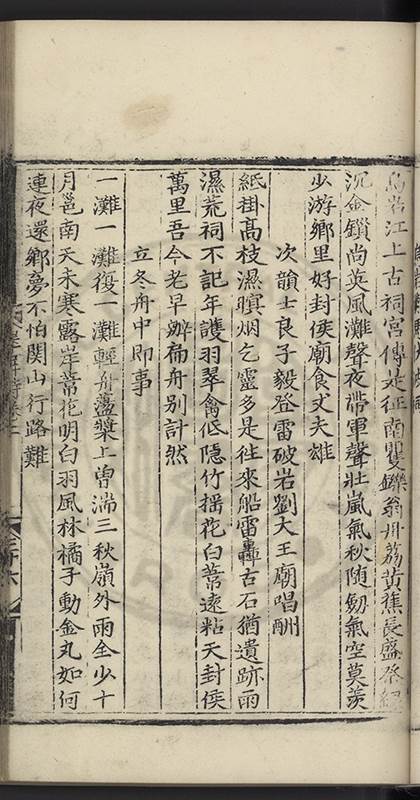 烏岩江上古祠宮傳是征南矍鑠翁丹荔黃蕉長盛祭縆
沉金鎖尚英風灘聲夜帶軍聲壯嵐氣秋隨劒氣空莫羨
少游鄉里好封侯廟食丈夫雄
次韻士良子毅登雷破岩劉大王廟唱酬
紙掛髙枝濕暝烟乞靈多是徃來船雷轟古石猶遺跡雨
濕荒祠不記年護羽翠禽低隱竹揺花白葦遠粘天封侯
萬里吾今老早辦扁舟別計然
立冬舟中即事
一灘一灘復一灘輕舟蕩槳上曽湍三秋嶺外雨全少十
月邕南天未寒露岸葦花明白羽風林橘子動金丸如何
連夜還鄉夢不怕関山行路難